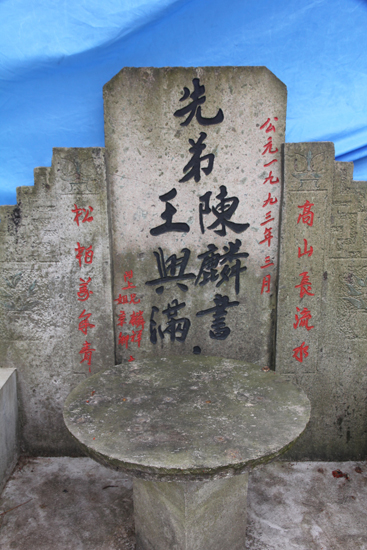 高山長流水
公元一九九三年三月
先弟
陳麟書
王興滿
松柏萬年青